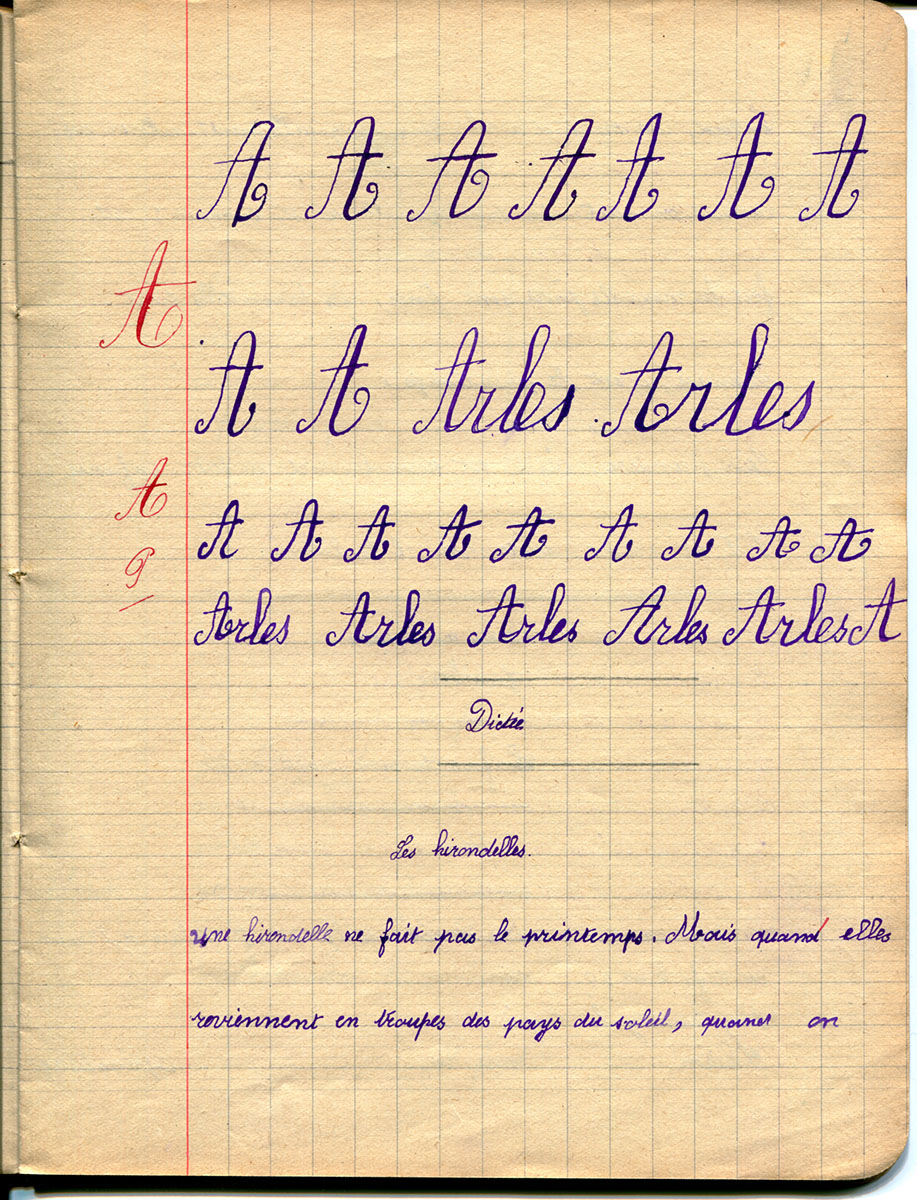 A A A A A A A
A
A A Arles Arles
A
A A A A A A A A A
9
Arles Arles Arles Arles Arles A
Dictée
Les hirondelles.
une hirondelle ne fait pas le printemps. Mais quand elles
reviennent en troupes des pays du soleil, quand on